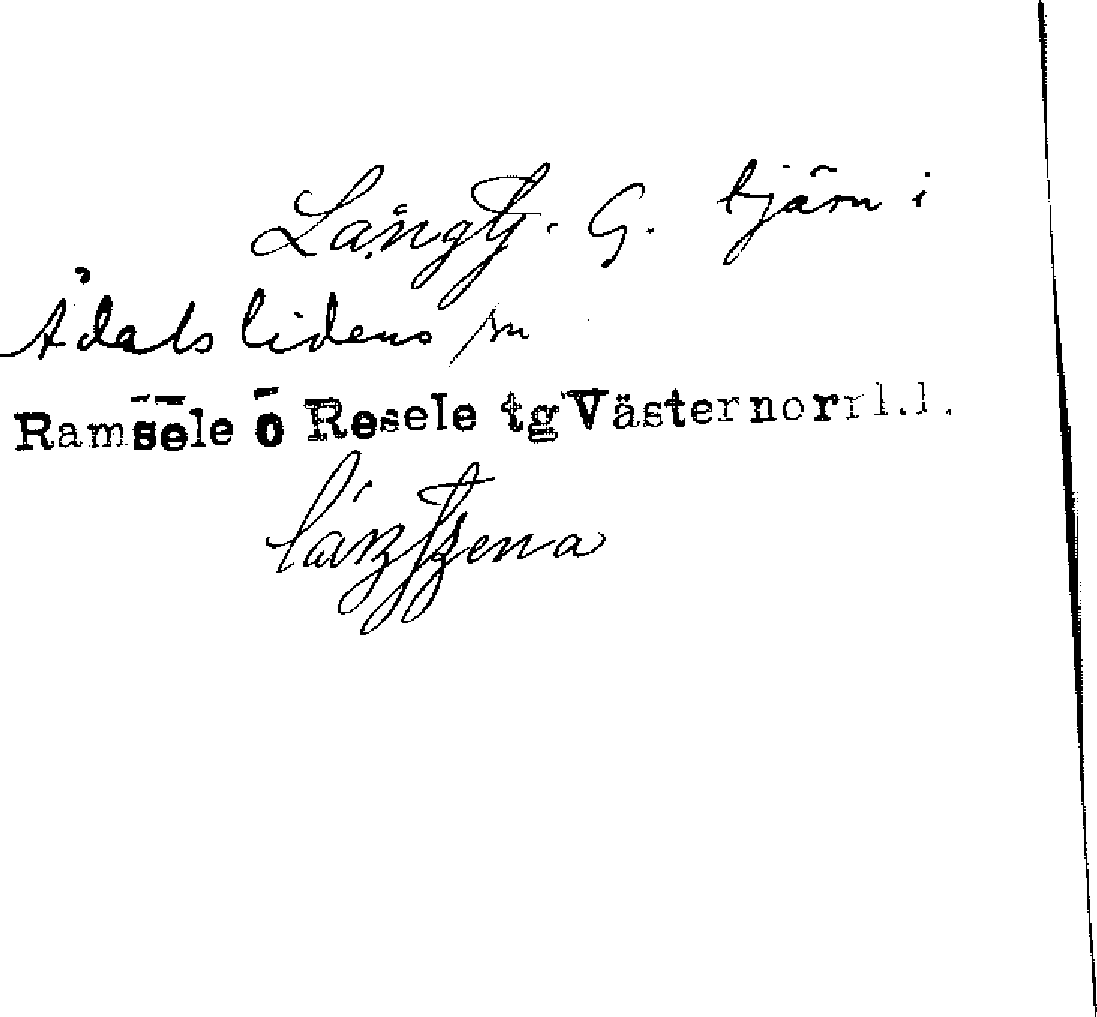 Långtj. G. tjärn i
Ådals lidens sn
Ramsele o Resele tg Västernorrl.l.